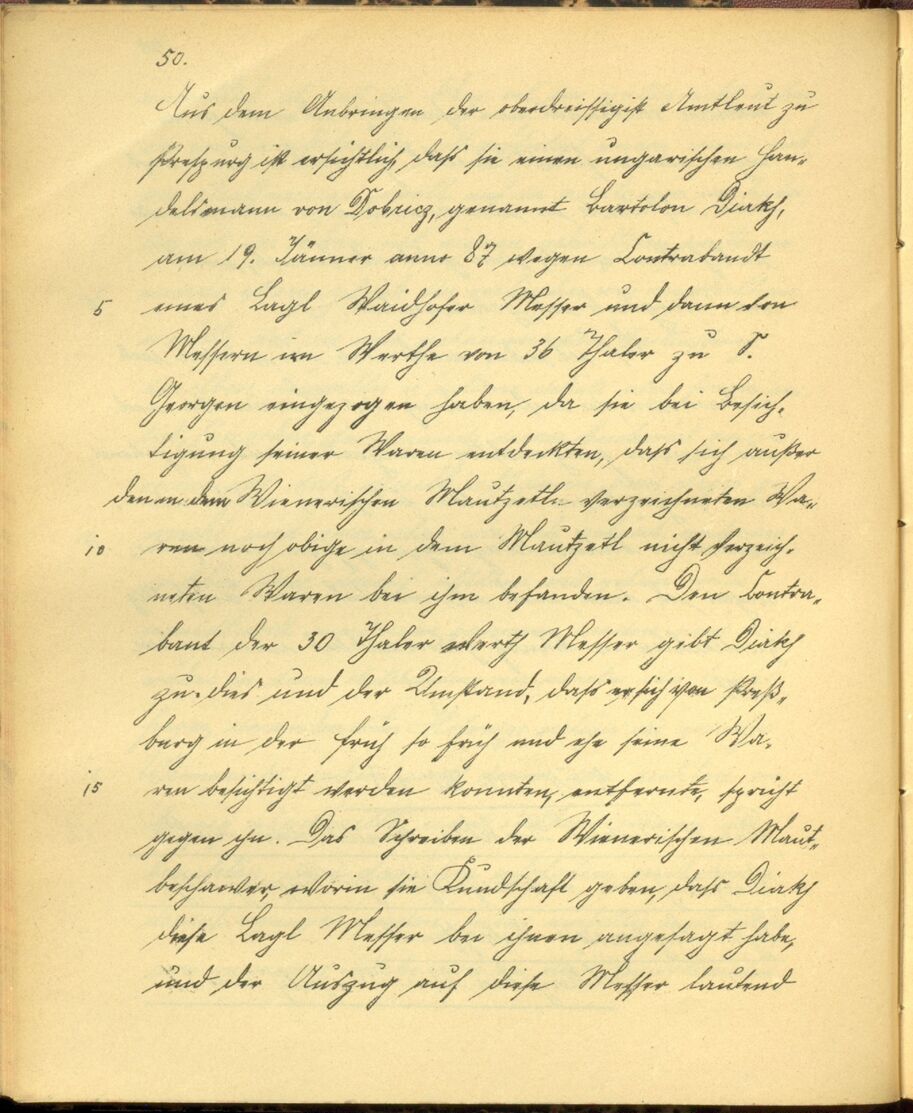 50.
Aus dem Anbringen der oberdreissigist Amtleut zu
Prespurg ist ersichtlich, dass sie einen ungarischen Han-
delsmann von Dobricz, genannt Bartolon Diakh,
am 19. Jänner anno 87 wegen Contrabandt
5 eines Lagl Waidhofer Messer und dann von
Messern im Werthe von 36 Thaler zu S.
Georgen eingezogen haben, da sie bei Besich-
tigung seiner Waren entdeckten, dass sich außer
den in dem Wienerischen Mautzetln verzeichneten Wa-
10 ren noch obige in dem Mautzetl nicht verzeich-
neten Waren bei ihm befanden. Den Contra-
bant der 30 Thaler werth Messer gibt Diakh
zu. dies und der Umstand, dass er sich von Preß-
burg in der früh so früh und ehe seine Wa-
15 ren besichtigt werden konnten, entfernte, spricht
gegen ihn. Das Schreiben der Wienerischen Maut-
beschawer, worin sie Kundschaft geben, dass Diakh
diese Lagl Messer bei ihnen angesagt habe,
und der Auszug auf diese Messer lautend